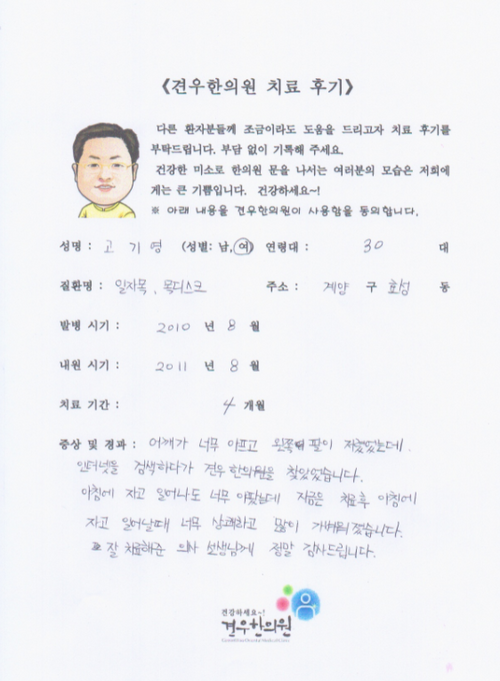 《견우한의원 치료 후기》
다른 환자분들께 조금이라도 도움을 드리고자 치료 후기를
부탁드립니다. 부담 없이 기록해 주세요.
건강한 미소로 한의원 문을 나서는 여러분의 모습은 저희에
게는 큰 기쁨입니다. 건강하세요~!
※ 아래 내용을 견우한의원이 사용함을 동의합니다.
성명 : 고 기 영 (성별: 남, 여) 연령대 : 30 대
질환명 : 일자목, 목디스크 주소 : 계양 구 효성 동
발병 시기 : 2010 년 8 월
내원 시기 : 2011 년 8 월
치료 기간 : 4 개월
증상 및 경과 : 어깨가 너무 아프고 왼쪽 팔이 저렸었는데.
인터넷을 검색하다가 견우한의원을 찾았었습니다.
아침에 자고 일어나도 너무 아팠는데 지금은 치료후 아침에
자고 일어날때 너무 상쾌하고 많이 가벼워졌습니다.
잘 치료해준 의사 선생님께 정말 감사드립니다.
건강하세요~!
견우한의원